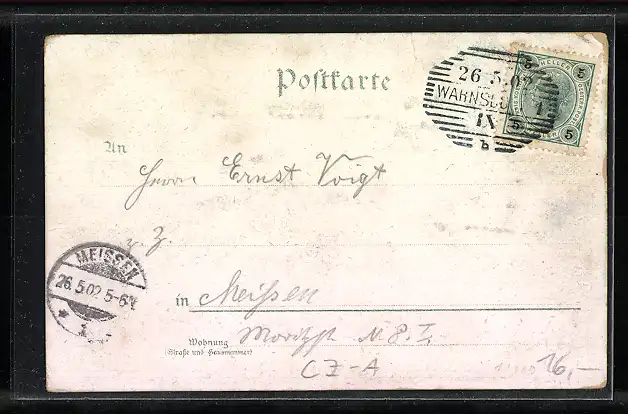 Postkarte
26 5.02
WARNSD
1
IX
b
5 HELLER 5
5 5
An
Herrn Ernst Voigt
z. Z.
MEISSEN
26.5.02 5-6
1
in Meißen
Wohnung
(Straße und Hausnummer)
Moritzst N 8. I.
CZ-A
16,–